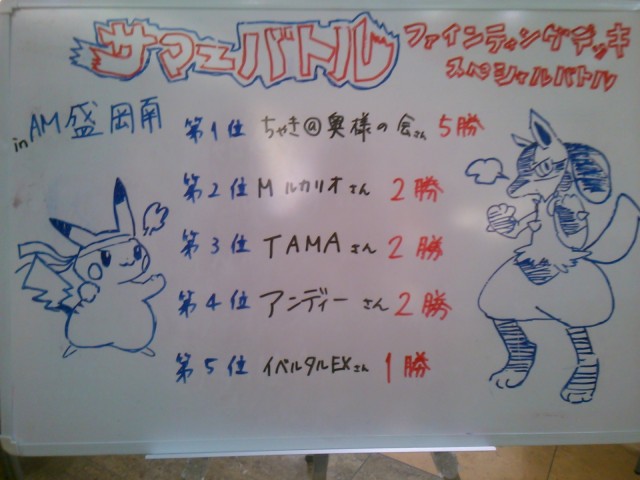 サマーバトル
ファインティングデッキ
スペシャルバトル
in AM盛岡南
第1位 ちゃき@奥様の会さん 5勝
第2位 Mルカリオさん 2勝
第3位 TAMAさん 2勝
第4位 アンディーさん 2勝
第5位 イベルタルEXさん 1勝